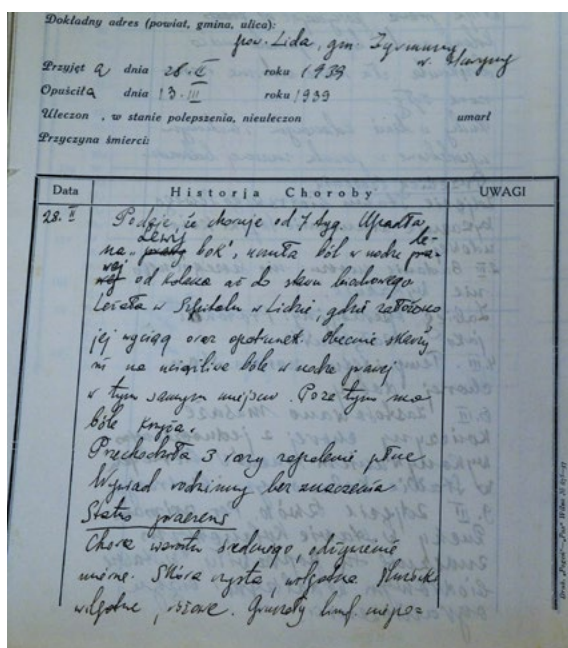 Dokładny adres (powiat, gmina, ulica):
pow. Lida, gm. Żyrmuny
w.
Przyjęta dnia 28.II roku 1939
Opuściła dnia 13.III roku 1939
Uleczon , w stanie polepszenia, nieuleczon umarł
Przyczyna śmierci:
Data Historja Choroby UWAGI
28.II Podaje, że choruje od 7 tyg. Upadła
na „prawy lewy bok", czuła ból w udzie le-
wej od kolana aż do stawu biodrowego
Leżała w Szpitalu w Lidzie, gdzie założono
jej wyciąg oraz opatrunek. Obecnie skarży
się na uciążliwe bóle w udzie prawej
w tym samym miejscu. Poza tym ma
bóle krzyża.
Przechodziła 3 razy zapalenie płuc
Wywiad rodzinny bez znaczenia
Status praesens
Chora wzrostu średniego, odżywienie
mierne. Skóra czysta, wilgotna śluzówki
wilgotne, różowe. Gruczoły limf. niepo=